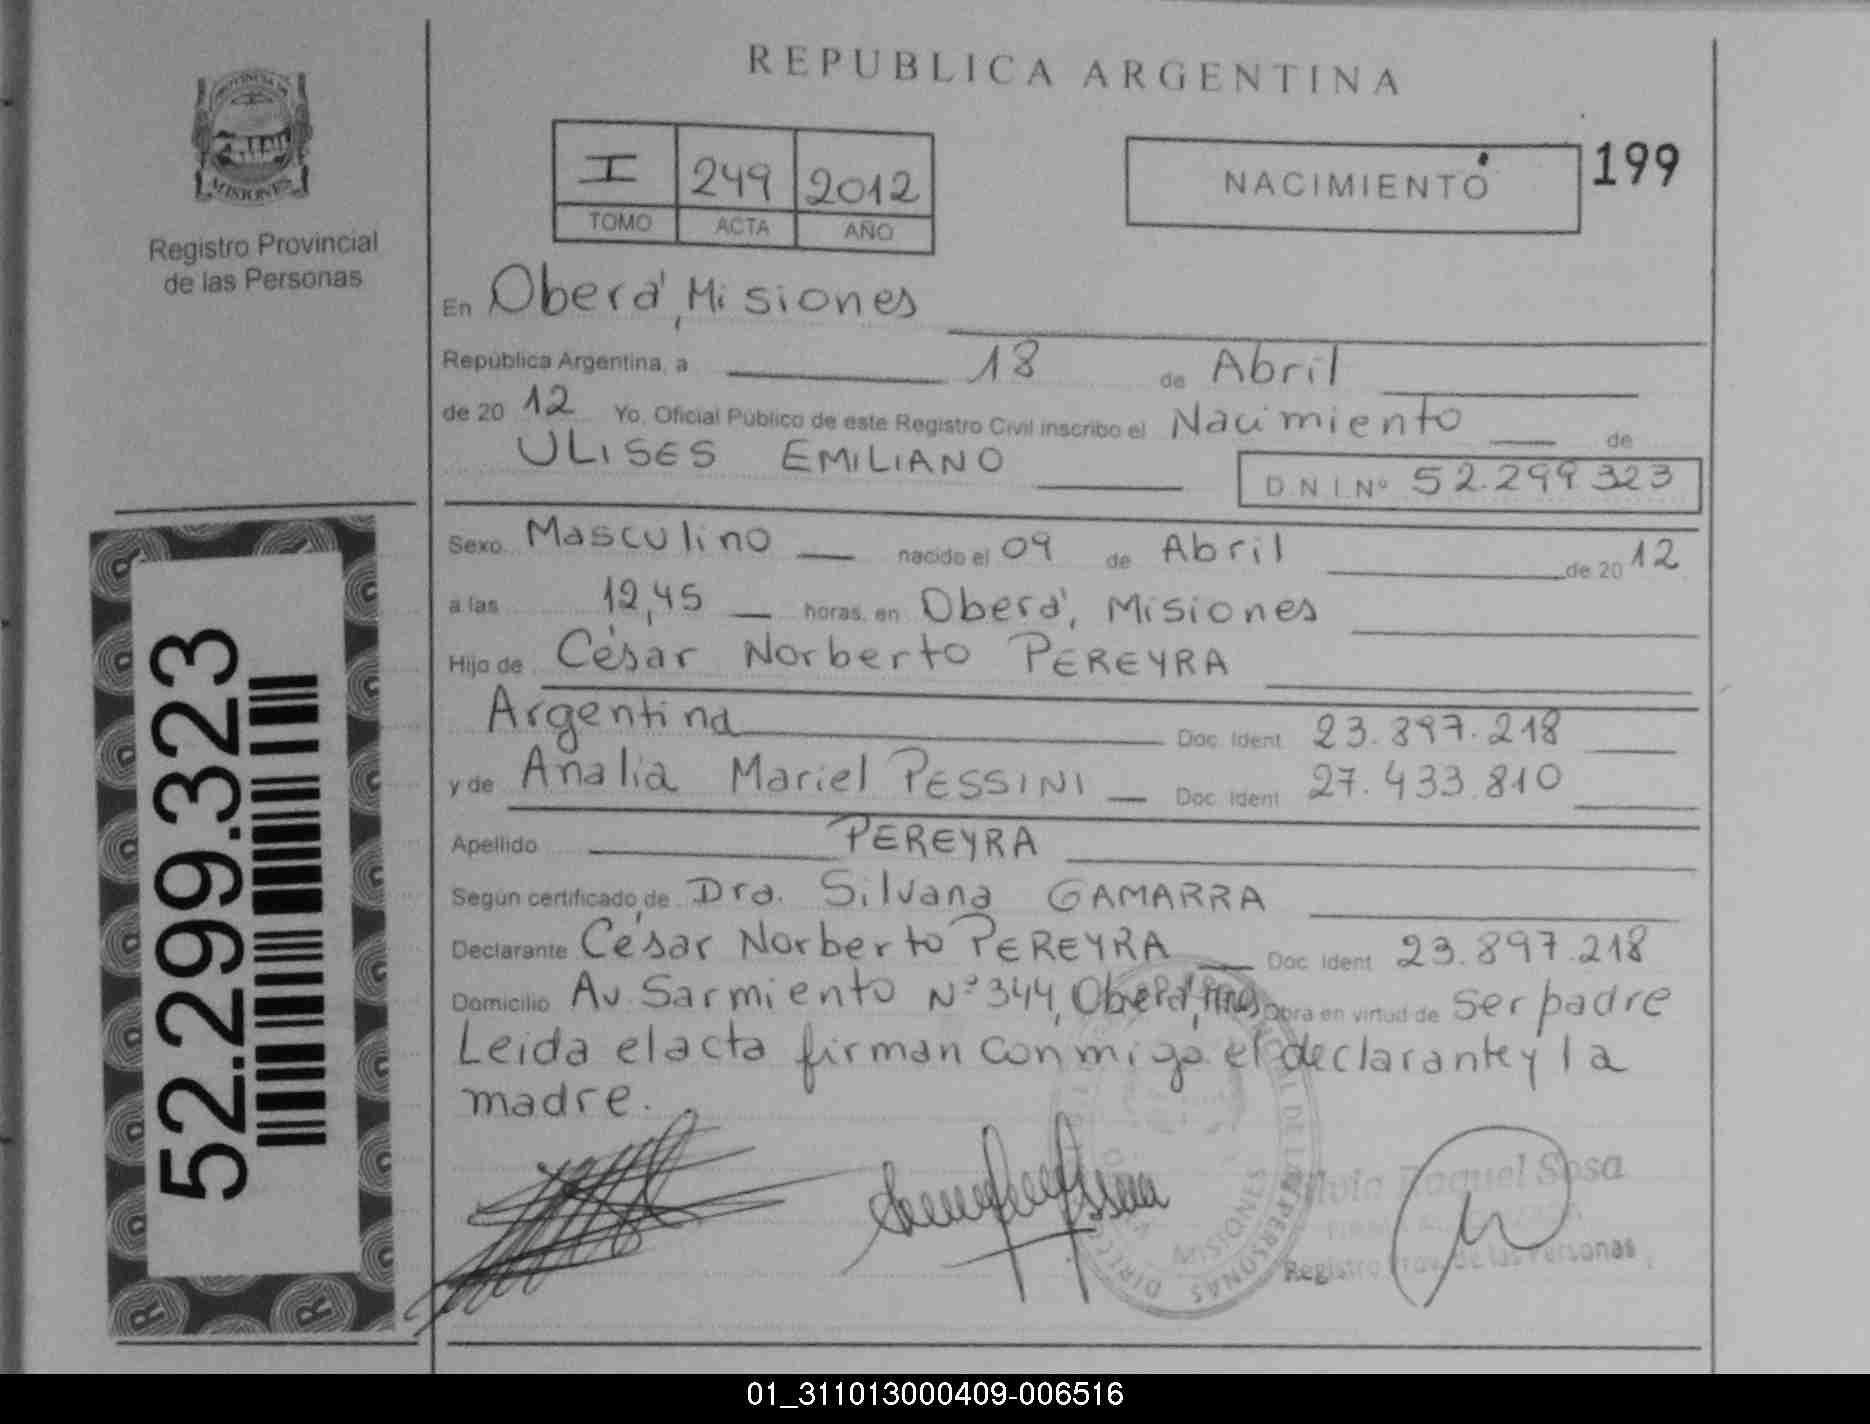 REPUBLICA ARGENTINA
PROVINCIA DE
MISIONES
Registro Provincial
de las Personas
I 249 2012
TOMO ACTA AÑO
NACIMIENTO
199
En Oberá, Misiones
República Argentina, a 18 de Abril
de 20 12 Yo, Oficial Público de este Registro Civil inscribo el Nacimiento de
ULISES EMILIANO
D N I Nº 52.299 323
Sexo Masculino nacido el 09 de Abril de 20 12
a las 12,45 horas, en Oberá, Misiones
Hijo de César Norberto PEREYRA
Argentina Doc. Ident 23.897.218
y de Analia Mariel PESSINI Doc. Ident 27.433.810
Apellido PEREYRA
Según certificado de Dra. Silvana GAMARRA
Declarante César Norberto PEREYRA Doc. Ident 23.897.218
Domicilio Av. Sarmiento Nº 344, Oberá, Mnes Obra en virtud de ser padre
Leida el acta firman conmigo el declarante y la
madre.
52.299.323
MISIONES
Raquel Sosa
Registro Prov. de las Personas
01_311013000409-006516